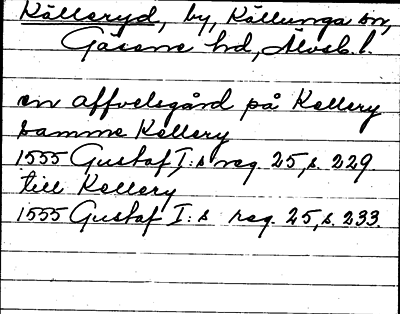 Källeryd, by, Källunga sn,
Gäsene hd, Älvsb. l.
en affvelsgård på Kellery
samme Kellery
1555 Gustaf I:s reg. 25, s. 229.
till Kellery
1555 Gustaf I:s reg. 25, s. 233.